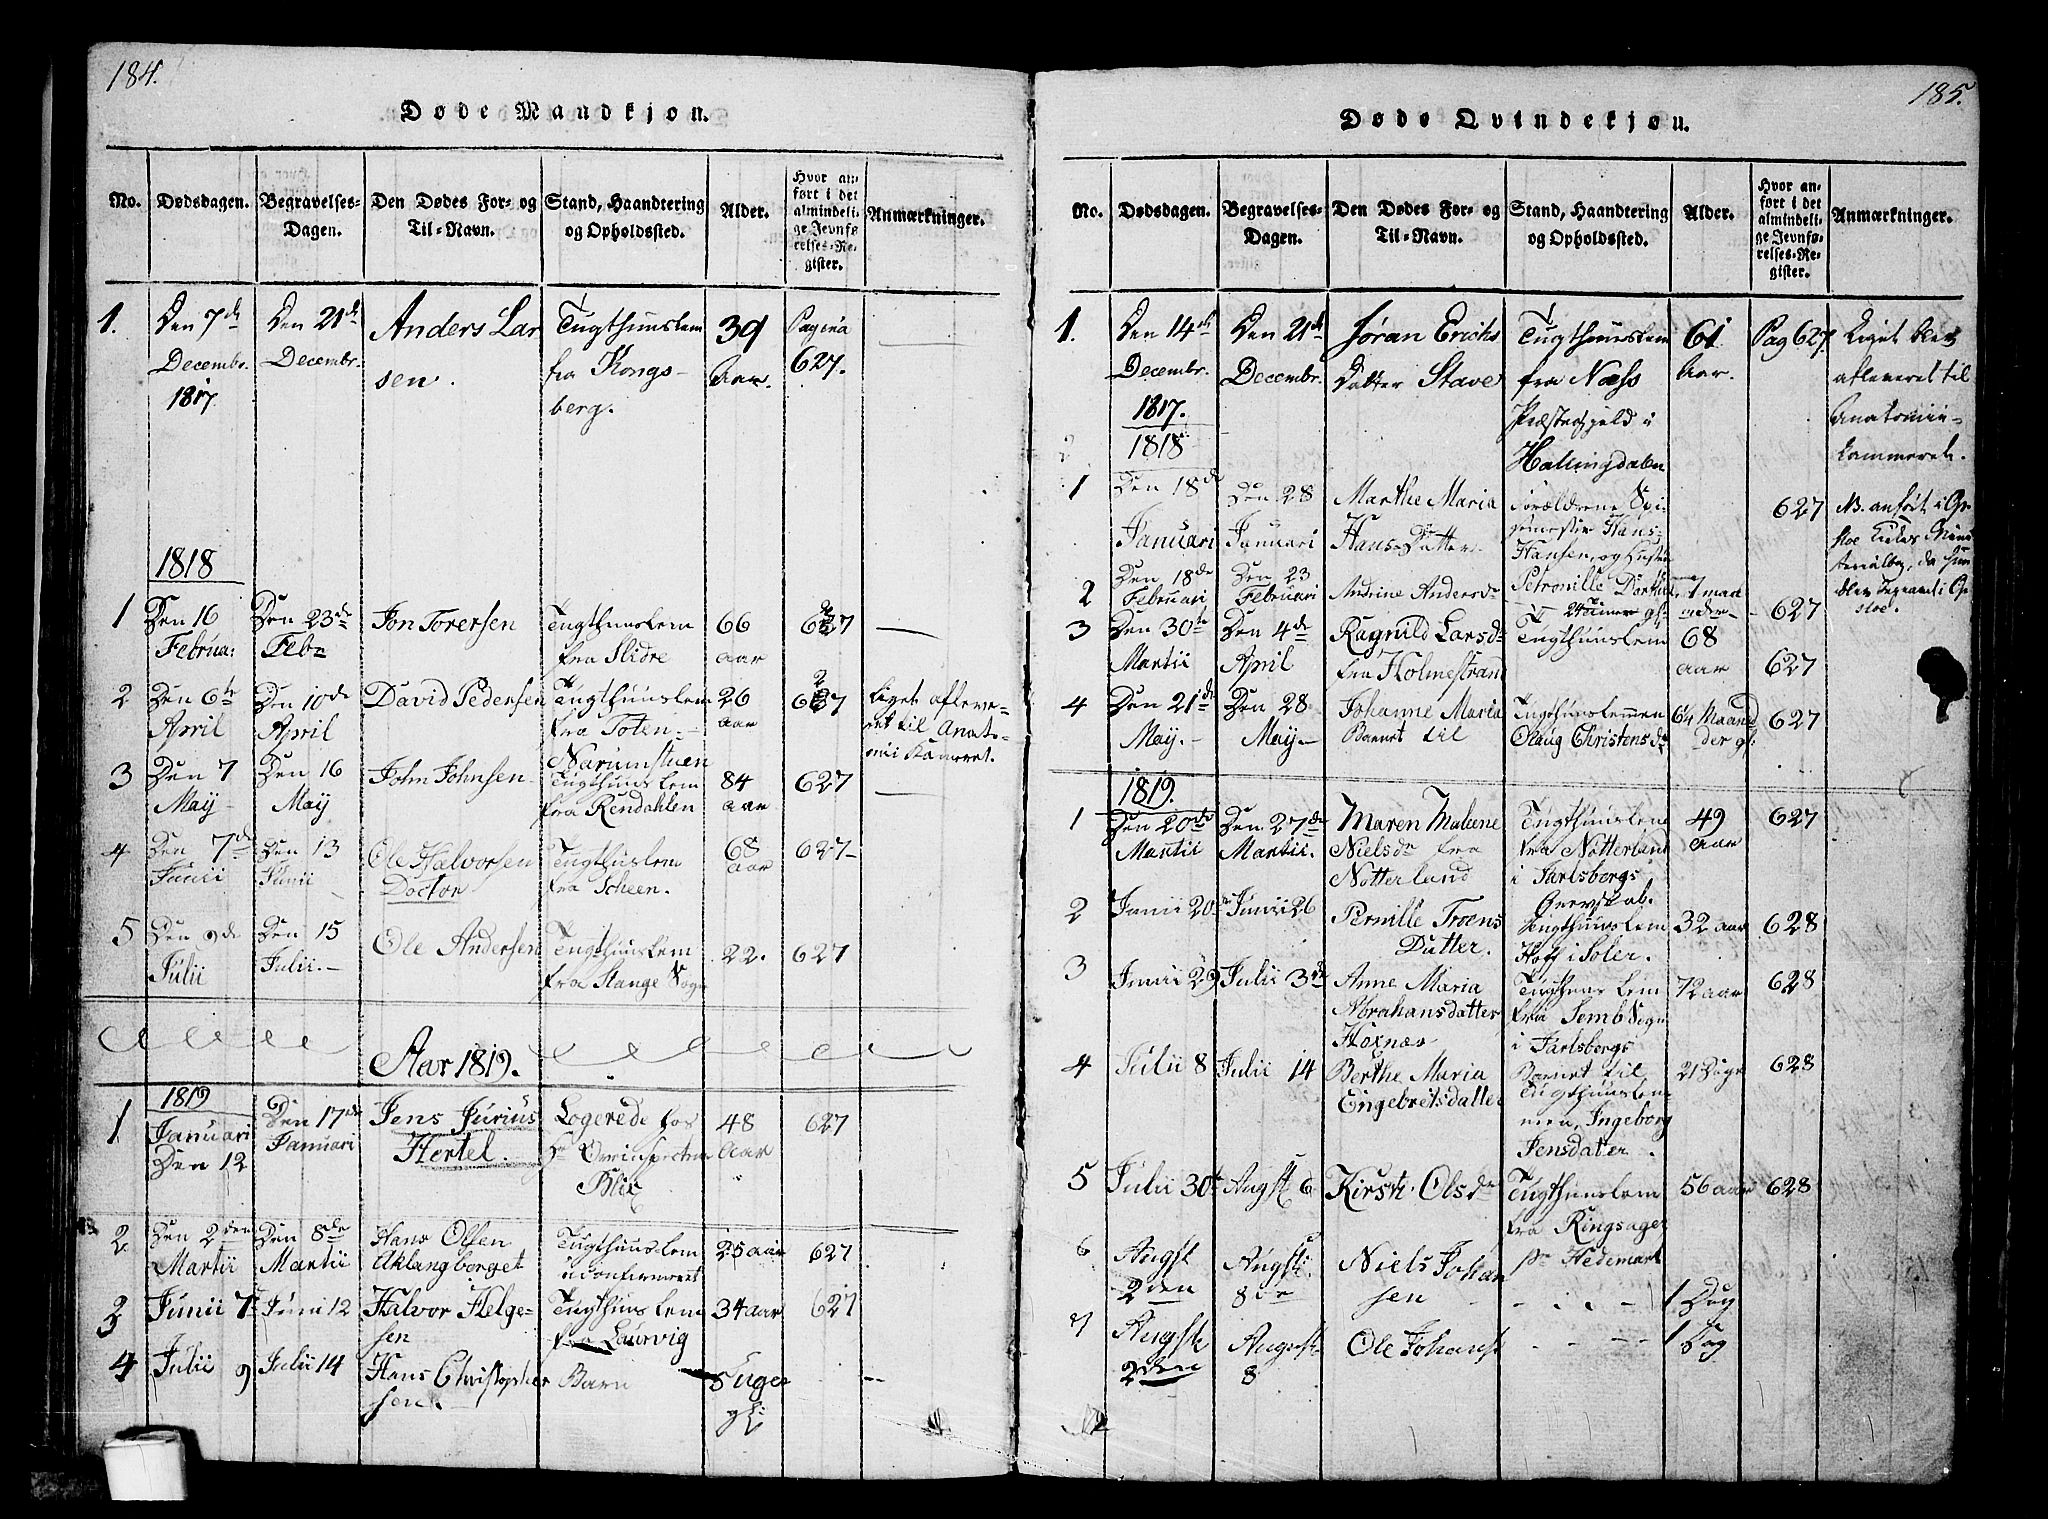 184.
Døde Mandkjøn.
No.
Dødsdagen.
Begravelses-
Dagen.
Den Dødes For- og
Til-Navn.
Stand, Haandtering
og Opholdssted.
Alder.
Hvor an-
ført i det
almindeli-
ge Jevnfø-
relses-Re-
gister.
Anmærkninger.
1.
Den 7de
Decembr.
1817
Den 21de
Decembr.
Anders Lar
sen.
Tugthuuslem
fra Kongs-
berg.
39
Aar.
Pagina
627.
1818
1
Den 16
Februa:
Den 23de
Feb
Jon Torersen
Tugthuuslem
fra Slidre
66
aar
627
2
Den 6te
April
Den 10de
April
David Pedersen
Tugthuuslem
fra Toten-
Narumstuen
26
aar
627
Liget afleve-
ret til Anato-
mii Kameret.
3
Den 7
May
Den 16
May
John Johnsen
Tugthuuslem
fra Rendahlen
84
aar
627
4
Den 7de
Junii
Den 13
Junii
Ole Halvorsen
Doctor
Tugthuslem
fra Scheen.
68
aar
627
5
Den 9de
Julii
Den 15
Julii.
Ole Andersen
Tugthuuslem
fra Stange Sogn
22.
627
Aar 1819.
1819
1
Januari
Den 12
Den 17de
Januari
Jens Jurius
Hertel.
Logerede hos
Hr Overinspecteur
Blix
48
aar
627
2
Den 2den
Martii
Den 8de
Martii
Hans Olsen
Aklangberget
Tugthuuslem
uconfirmeret
25 aar
627
3
Junii 7
Juni 12
Halvor Helge-
sen
Tugthuuslem
fra Laurvig
34 aar
627
4
Julii 9
Julii 14
Hans Christopher
sen
Barn
5 Uger
gl:
185.
Døde Qvindekjøn.
No.
Dødsdagen.
Begravelses-
Dagen.
Den Dødes For- og
Til-Navn.
Stand, Haandtering
og Opholdssted.
Alder.
Hvor an-
ført i det
almindeli-
ge Jevnfø-
relses-Re-
gister.
Anmærkninger.
1.
Den 14de
Decembr.
1817.
Den 21de
Decembr.
Jøran Erichs
Datter Stave
Tugthuuslem
fra Næss
Præstegjeld i
Hallingdalen
61
Aar.
Pag 627.
Liget blev
afleveret til
Anatomii-
kammeret.
1818
1
Den 18de
Januari
Den 28
Januari
Marthe Maria
Hans-Datter
Forældrene Spi-
semester Hans
Hansen, og Hustru
Petronille
627
NB. anført i
2
Den 18de
Februari
Den 23
Februari
Andrine Andersdr
24 Timer gl:
627
3
Den 30te
Martii
Den 4de
April
Ragnild Larsdr
fra Holmestrand
Tugthuuslem
68
aar
627
4
Den 21de
May.
Den 28
May.
Johanne Maria
Barnet til
Tugthuuslemmen
Olaug Christensdr
6¼ Maand
der gl:
627
1819.
1
Den 20de
Martii
Den 27de
Martii.
Maren Malene
Nielsdr fra
Notterland
Tugthuuslem
fra Notterland
i Jarlsbergs
Grevskab.
49
aar
627
2
Junii 20
Junii 26
Pernille Troens
Datter.
Tugthuuslem
Hoff i Soler.
32 aar
628
3
Junii 29
Julii 3de
Anne Maria
Abrahansdatter
Hoxnæs
Tugthuus lem
fra Semb Sogn
i Jarlsbergs
72 aar
628
4
Julii 8
Julii 14
Berthe Maria
Engebretsdatter
Barnet til
Tugthuuslem-
men, Ingeborg
Jensdatter.
21 Dage
628
5
Julii 30te
Augst 6
Kirsti Olsdr
Tugthuuslem
fra Ringsager
pr Hedemark
56 aar
628
6
Augst
2den
Augsti
8de
Niels Johan
sen
1 Dag
7
Augst
2den
August
8
Ole Johans
1 Dag